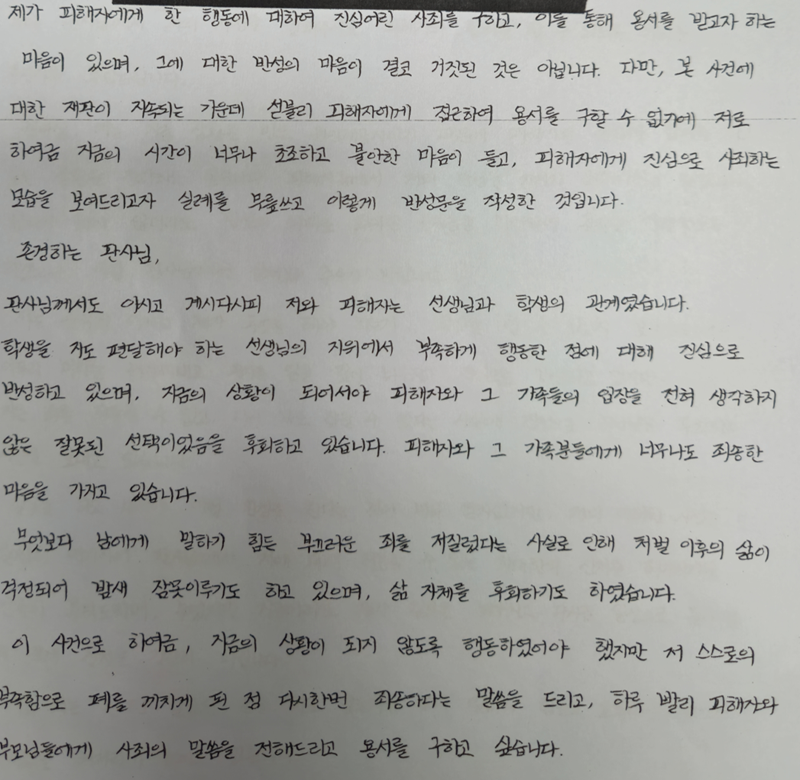 제가 피해자에게 한 행동에 대하여 진심어린 사죄를 구하고, 이를 통해 용서를 받고자 하는
마음이 있으며, 그에 대한 반성의 마음이 결코 거짓된 것은 아닙니다. 다만, 본 사건에
대한 재판이 지속되는 가운데 섣불리 피해자에게 접근하여 용서를 구할 수 없기에 저로
하여금 지금의 시간이 너무나 초조하고 불안한 마음이 들고, 피해자에게 진심으로 사죄하는
모습을 보여드리고자 실례를 무릎쓰고 이렇게 반성문을 작성한 것입니다.
존경하는 판사님,
판사님께서도 아시고 계시다시피 저와 피해자는 선생님과 학생의 관계였습니다.
학생을 지도 편달해야 하는 선생님의 지위에서 부족하게 행동한 점에 대해 진심으로
반성하고 있으며, 지금의 상황이 되어서야 피해자와 그 가족들의 입장을 전혀 생각하지
않은 잘못된 선택이었음을 후회하고 있습니다. 피해자와 그 가족분들에게 너무나도 죄송한
마음을 가지고 있습니다.
무엇보다 남에게 말하기 힘든 부끄러운 죄를 저질렀다는 사실로 인해 처벌 이후의 삶이
걱정되어 밤새 잠못이루기도 하고 있으며, 삶 자체를 후회하기도 하였습니다.
이 사건으로 하여금, 지금의 상황이 되지 않도록 행동하였어야 했지만 저 스스로의
부족함으로 폐를 끼치게 된 점 다시한번 죄송하다는 말씀을 드리고, 하루 빨리 피해자와
부모님들에게 사죄의 말씀을 전해드리고 용서를 구하고 싶습니다.